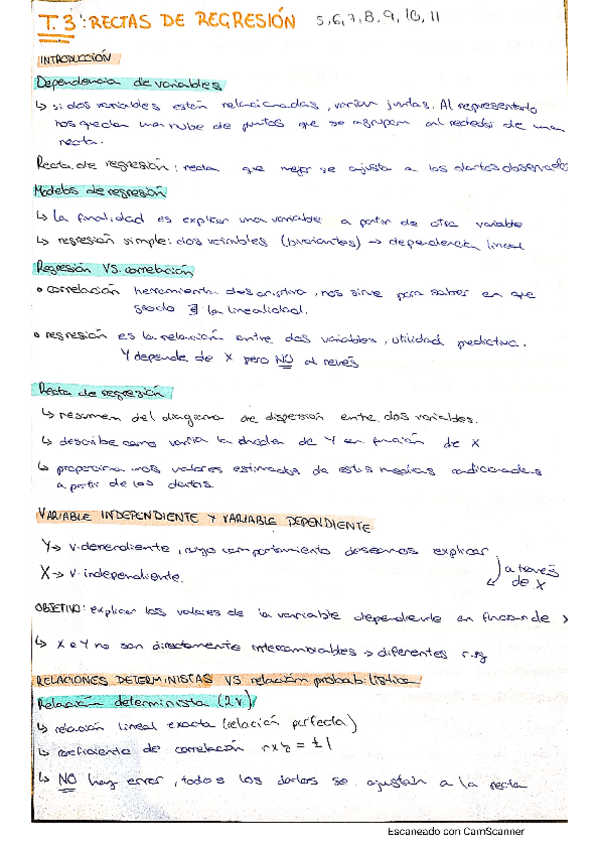 T.3: RECTAS DE REGRESIÓN 5,6,7,8,9,10,11
INTRODUCCIÓN
Dependencia de variables
↳ si dos variables están relacionadas, varían juntas. Al representarlo
nos quedan una nube de puntos que se agrupan al rededor de una
recta.
Recta de regresión: recta que mejor se ajusta a los datos observados
Modelos de regresión
↳ la finalidad es explicar una variable a partir de otra variable
↳ regresión simple: dos variables (bivariantes) → dependencia lineal
Regresión VS. correlación
• correlación herramienta descriptiva, nos sirve para saber en que
grado ∃ la linealidad.
• regresión es la relación entre dos variables, utilidad predictiva.
Y depende de X pero NO al revés
Recta de regresión
↳ resumen del diagrama de dispersión entre dos variables.
↳ describe como varía la de Y en función de X
↳ proporciona unos valores estimados de estas medias condicionadas
a partir de los datos.
VARIABLE INDEPENDIENTE Y VARIABLE DEPENDIENTE
Y→ v. dependiente, cuyo comportamiento deseamos explicar
X→ v. independiente.
a través
de X
OBJETIVO: explicar los valores de la variable dependiente en función de
↳ X e Y no son directamente intercambiables → diferentes
RELACIONES DETERMINISTAS VS relación probabilística
Relación determinista (2v)
↳ relación lineal exacta (relación perfecta)
↳ coeficiente de correlación rxy = ±1
↳ NO hay error, todos los datos se ajustan a la recta
Escaneado con CamScanner